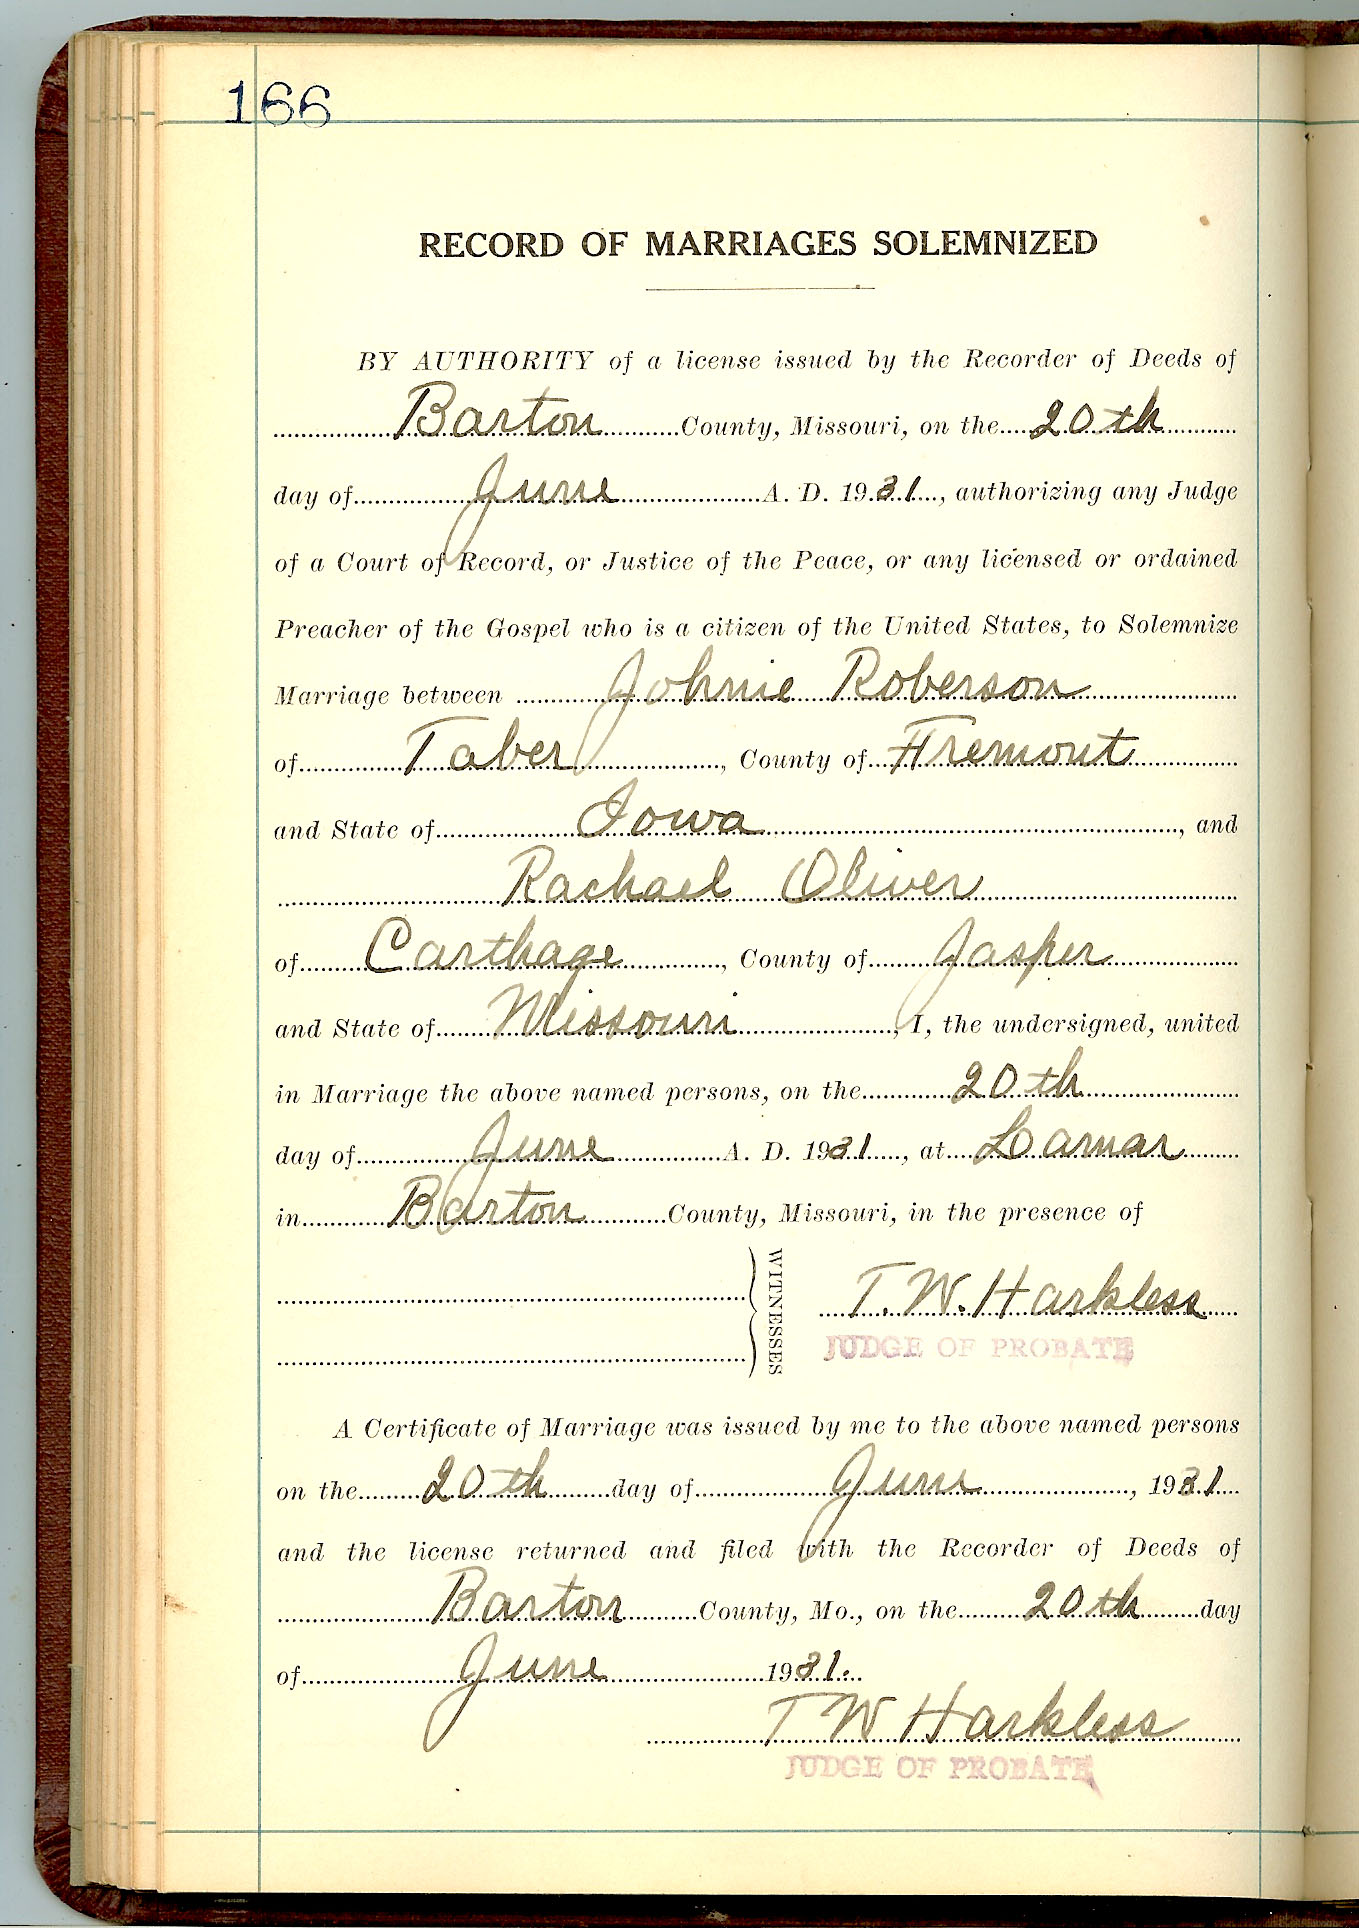 166
RECORD OF MARRIAGES SOLEMNIZED
BY AUTHORITY of a license issued by the Recorder of Deeds of
Barton County, Missouri, on the 20th
day of June A. D. 1931, authorizing any Judge
of a Court of Record, or Justice of the Peace, or any licensed or ordained
Preacher of the Gospel who is a citizen of the United States, to Solemnize
Marriage between Johnie Roberson
of Taber, County of Fremont
and State of Iowa, and
Rachael Oliver
of Carthage, County of Jasper
and State of Missouri, I, the undersigned, united
in Marriage the above named persons, on the 20th
day of June A. D. 1931, at Lamar
in Barton County, Missouri, in the presence of
WITNESSES
T. W. Harkless
JUDGE OF PROBATE
A Certificate of Marriage was issued by me to the above named persons
on the 20th day of June, 1931
and the license returned and filed with the Recorder of Deeds of
Barton County, Mo., on the 20th day
of June 1931.
T W Harkless
JUDGE OF PROBATE